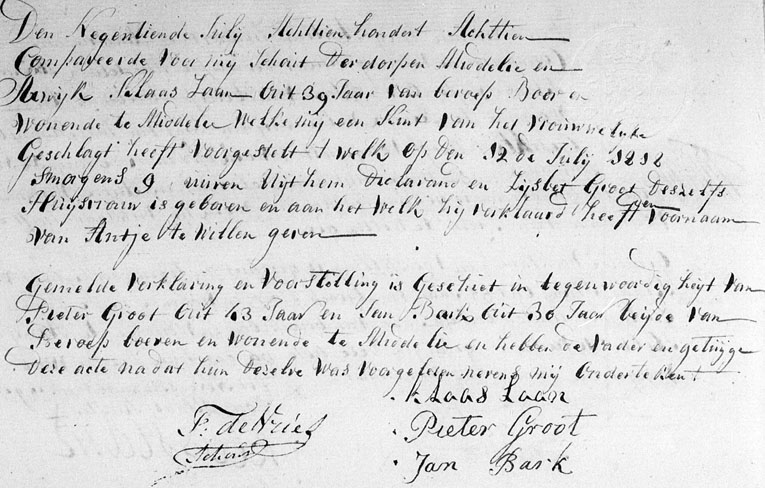 Den Negentiende July Achttien hondert Achttien
Compareerde voor mij Schout Der dorpen Middelie en
Axwijk Klaas Laan Out 39 Jaar van beroep Boer en
wonende te Middelie welke mij een Kint van het vrouwwelyke
Geschlagt heeft voorgestelt t welk op den 12 de July 1818
smorgens 9 uuren uijt hem Declarand en Lijsbet Groot deszelfs
Huijsvrouw is geboren en aan het welk hij verklaard heeft den voornaam
van Antje te willen geven
Gemelde verklaring en voorstelling is Geschiet in tegenwoordig heyt van
Pieter Groot Out 43 Jaar en Jan Bark Out 30 Jaar beijde van
Beroep boeren en wonende te Middelie en hebben de vader en getuijge
deze acte na dat hun deselve was voorgelesen nevens mij Onderteekent
Klaas Laan
F. de Vries Pieter Groot
Schout
Jan Bark